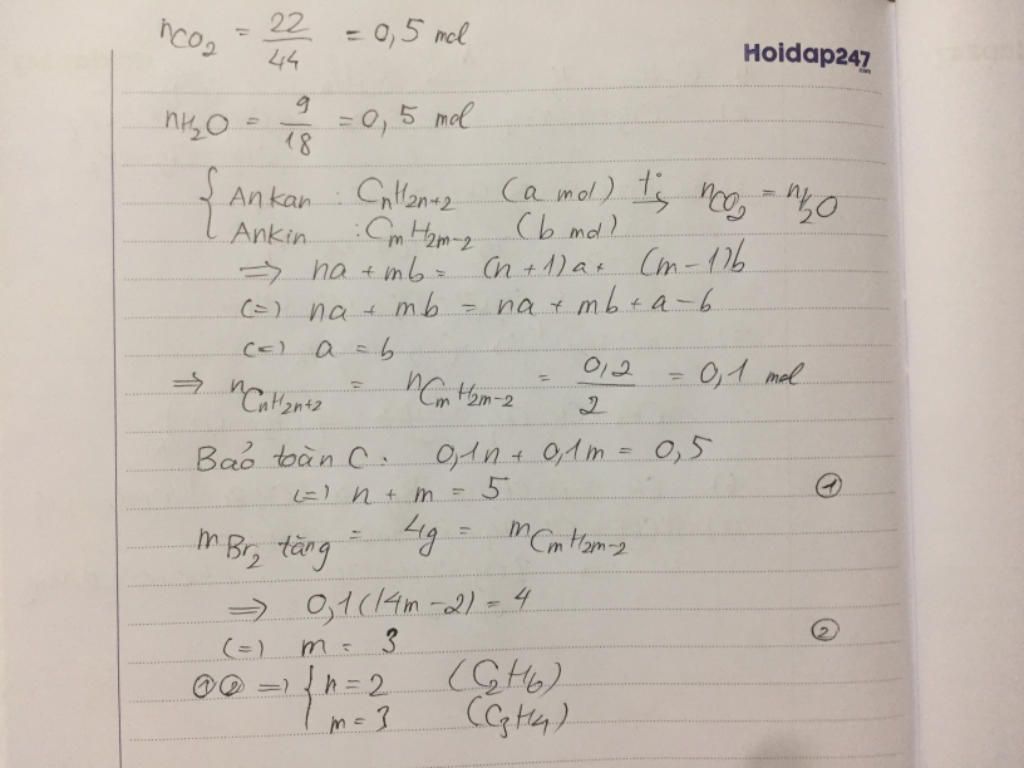 nCO2 = 22/44 = 0,5 mol
Hoidap247.com
nH2O = 9/18 = 0,5 mol
{ Ankan : CnH2n+2 (a mol) t°→ nCO2 = nH2O
Ankin : CmH2m-2 (b mol)
=> na + mb = (n+1)a + (m-1)b
(=) na + mb = na + mb + a - b
(=) a = b
=> nCnH2n+2 = nCmH2m-2 = 0,2/2 = 0,1 mol
Bảo toàn C. 0,1n + 0,1m = 0,5
(=) n + m = 5 ①
m Br2 tăng = 4g = mCmH2m-2
=> 0,1(14m-2) = 4
(=) m = 3 ②
①② => { n = 2 (C2H6)
m = 3 (C3H4)